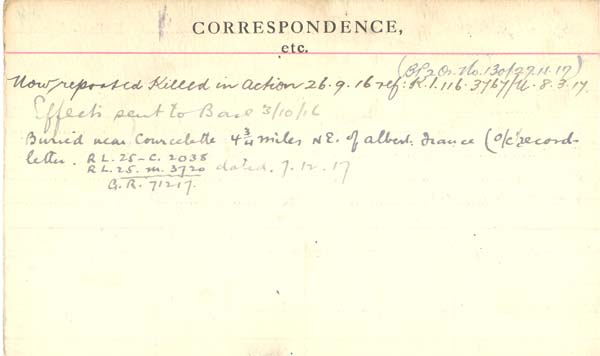 CORRESPONDENCE,
etc.
(Pt 2 Or. No. 130/27.11.17)
Now, reported Killed in action 26.9.16 ref: K.1.116.3767/U.8.3.17.
Effects sent to Base 3/10/16
Buried near Courcelette 4 3/4 miles N.E. of albert. France (O/C records
letter. RL.25-C.2038
RL.25.M.3720 dated. 7.12.17
G.R. 71217.